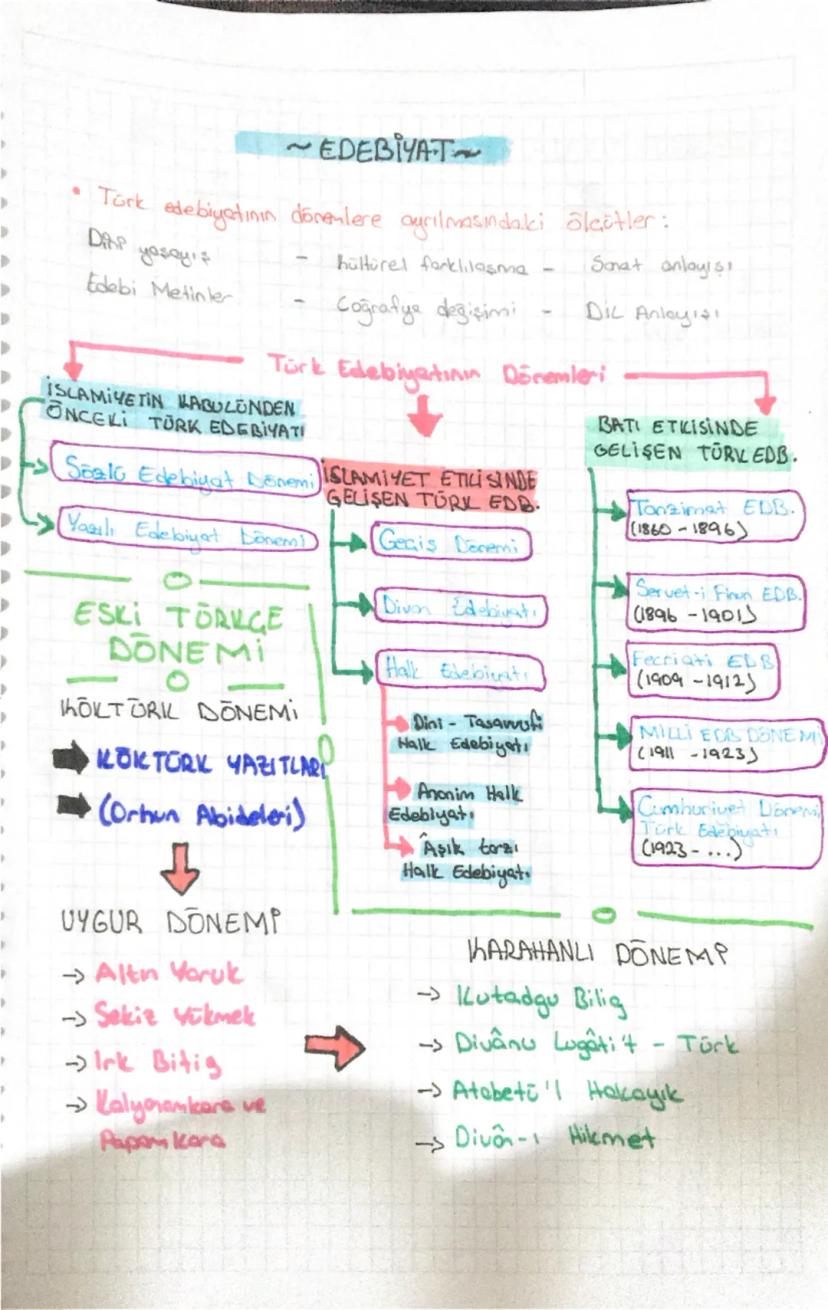 ~ EDEBİYAT ~
• Türk edebiyatının dönemlere ayrılmasındaki ölçütler:
Dini yaşayış - Kültürel farklılaşma - Sanat anlayışı
Edebi Metinler - Coğrafya değişimi - Dil Anlayışı
Türk Edebiyatının Dönemleri
İSLAMİYETİN KABULÜNDEN
ÖNCEKİ TÜRK EDEBİYATI
Sözlü Edebiyat Dönemi
Yazılı Edebiyat Dönemi
İSLAMİYET ETKİSİNDE
GELİŞEN TÜRK EDB.
Geçiş Dönemi
Divan Edebiyatı
Halk Edebiyatı
Dini - Tasavvufi
Halk Edebiyatı
Anonim Halk
Edebiyatı
Âşık tarzı
Halk Edebiyatı
BATI ETKİSİNDE
GELİŞEN TÜRK EDB.
Tanzimat EDB.
(1860 - 1896)
Servet-i Finun EDB.
(1896 - 1901)
Fecriati EDB
(1909 - 1912)
MİLLİ EDB DÖNEMİ
(1911 - 1923)
Cumhuriyet Dönemi
Türk Edebiyatı
(1923 - ...)
ESKİ TÜRKÇE
DÖNEMİ
KÖKTÜRK DÖNEMİ
KÖKTÜRK YAZITLARI
(Orhun Abideleri)
UYGUR DÖNEMİ
→ Altın Yaruk
→ Sekiz Yükmek
→ Irk Bitig
→ Kalyanamkara ve
Papamkara
KARAHANLI DÖNEMİ
→ Kutadgu Bilig
→ Divânu Lugâti't - Türk
→ Atabetü'l Hakayık
→ Divân-ı Hikmet